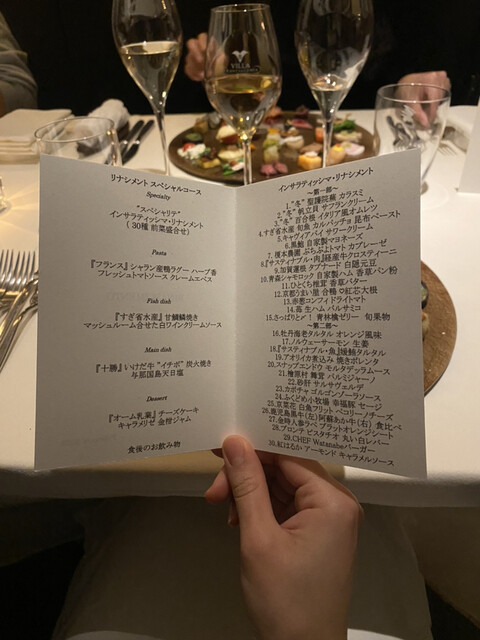 VILLA
リナシメント スペシャルコース
Specialty
"スペシャリテ"
インサラティッシマ・リナシメント
(30種 前菜盛合せ)
Pasta
『フランス』シャラン産鴨ラグー ハーブ香
フレッシュトマトソース クレームエペス
Fish dish
『すぎ省水産』甘鯛鱗焼き
マッシュルーム合せた白ワインクリームソース
Main dish
『十勝』いけだ牛 "イチボ" 炭火焼き
与那国島天日塩
Dessert
『オーム乳業』チーズケーキ
キャラメリゼ 金柑ジャム
食後のお飲み物
インサラティッシマ・リナシメント
〜第一部〜
1."冬" 聖護院蕪 カラスミ
2."冬" 帆立貝 サフランクリーム
3."冬" 百合根 イタリア風オムレツ
4.すぎ省水産 旬魚 カルパッチョ 昆布ペースト
5.キャヴィアパイ サワークリーム
6.黒鮑 自家製マヨネーズ
7.榎本農園 ぷちぷよトマト カプレーゼ
8.『サステナブル・肉』経産牛クロスティーニ
9.加賀蓮根 タプナード 白隠元豆
10.青森シャモロック 自家製ハム 香草パン粉
11.ひとくち栄螺 香草バター
12.京都うまい里 合鴨 紅芯大根
13.赤葱コンフィドライトマト
14.海 生ハム バルサミコ
15.さっぱりと〆! 青林檎ゼリー 旬果物
〜第二部〜
16.牡丹海老タルタル オレンジ風味
17.ノルウェーサーモン 生姜
18.『サステナブル・魚』 タルタル
19.アオリイカ煮込み 焼きポレンタ
20.スナップエンドウ モルタデッラムース
21.檜原村 舞茸 パルミジャーノ
22.砂肝 サルサヴェルデ
23.カボチャ ゴルゴンゾーラソース
24.ふくどめ小牧場 幸福豚 セージ
25.京菊花 白魚フリット ペコリーノチーズ
26.鹿児島黒牛(左)阿蘇あか牛(右) 食比べ
27.金時人参ラペ ブラッドオレンジシート
28.ブロンテ ピスタチオ 丸い白レバー
29.CHEF Watanabeバーガー
30.紅はるか アーモンド キャラメルソース